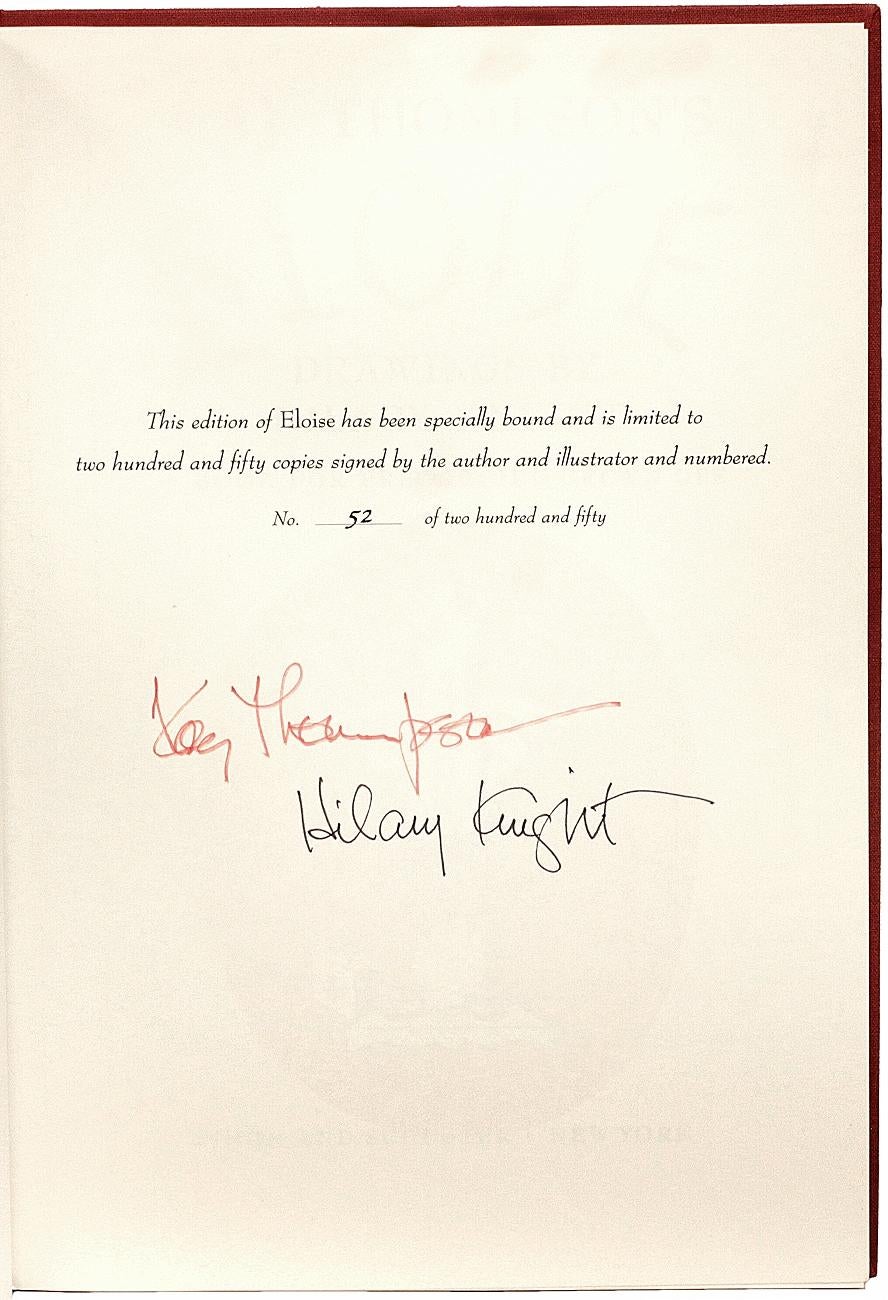 This edition of Eloise has been specially bound and is limited to
two hundred and fifty copies signed by the author and illustrator and numbered.
No. 52 of two hundred and fifty
Kay Thompson
Hilary Knight